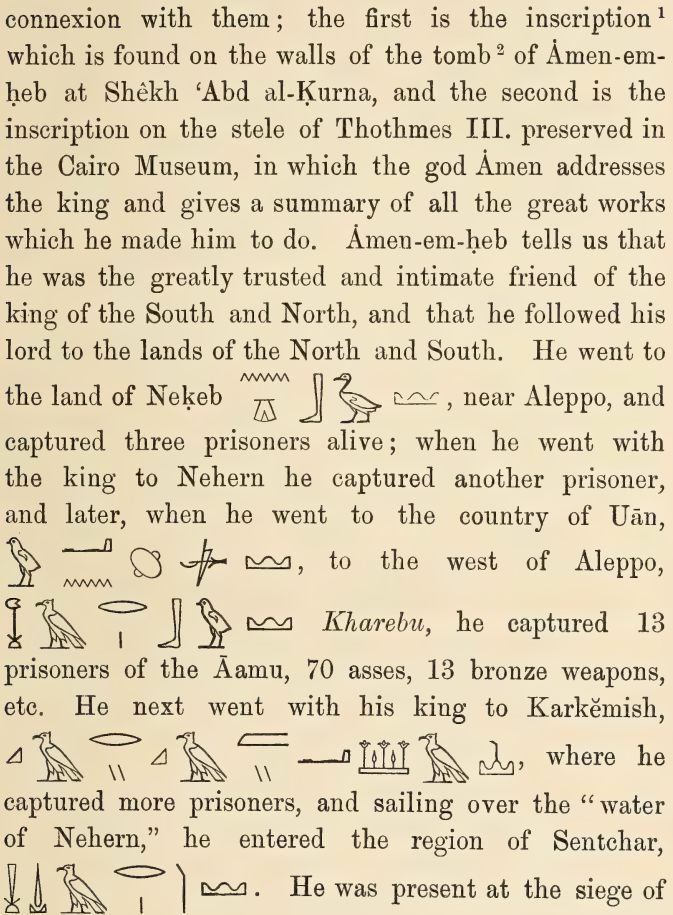 connexion with them; the first is the inscription ¹
which is found on the walls of the tomb ² of Ȧmen-em-
ḥeb at Shêkh ‘Abd al-Ḳurna, and the second is the
inscription on the stele of Thothmes III. preserved in
the Cairo Museum, in which the god Ȧmen addresses
the king and gives a summary of all the great works
which he made him to do. Ȧmeu-em-ḥeb tells us that
he was the greatly trusted and intimate friend of the
king of the South and North, and that he followed his
lord to the lands of the North and South. He went to
the land of Neḳeb , near Aleppo, and
captured three prisoners alive; when he went with
the king to Nehern he captured another prisoner,
and later, when he went to the country of Uān,
, to the west of Aleppo,
Kharebu, he captured 13
prisoners of the Āamu, 70 asses, 13 bronze weapons,
etc. He next went with his king to Karkĕmish,
, where he
captured more prisoners, and sailing over the “water
of Nehern,” he entered the region of Sentchar,
. He was present at the siege of